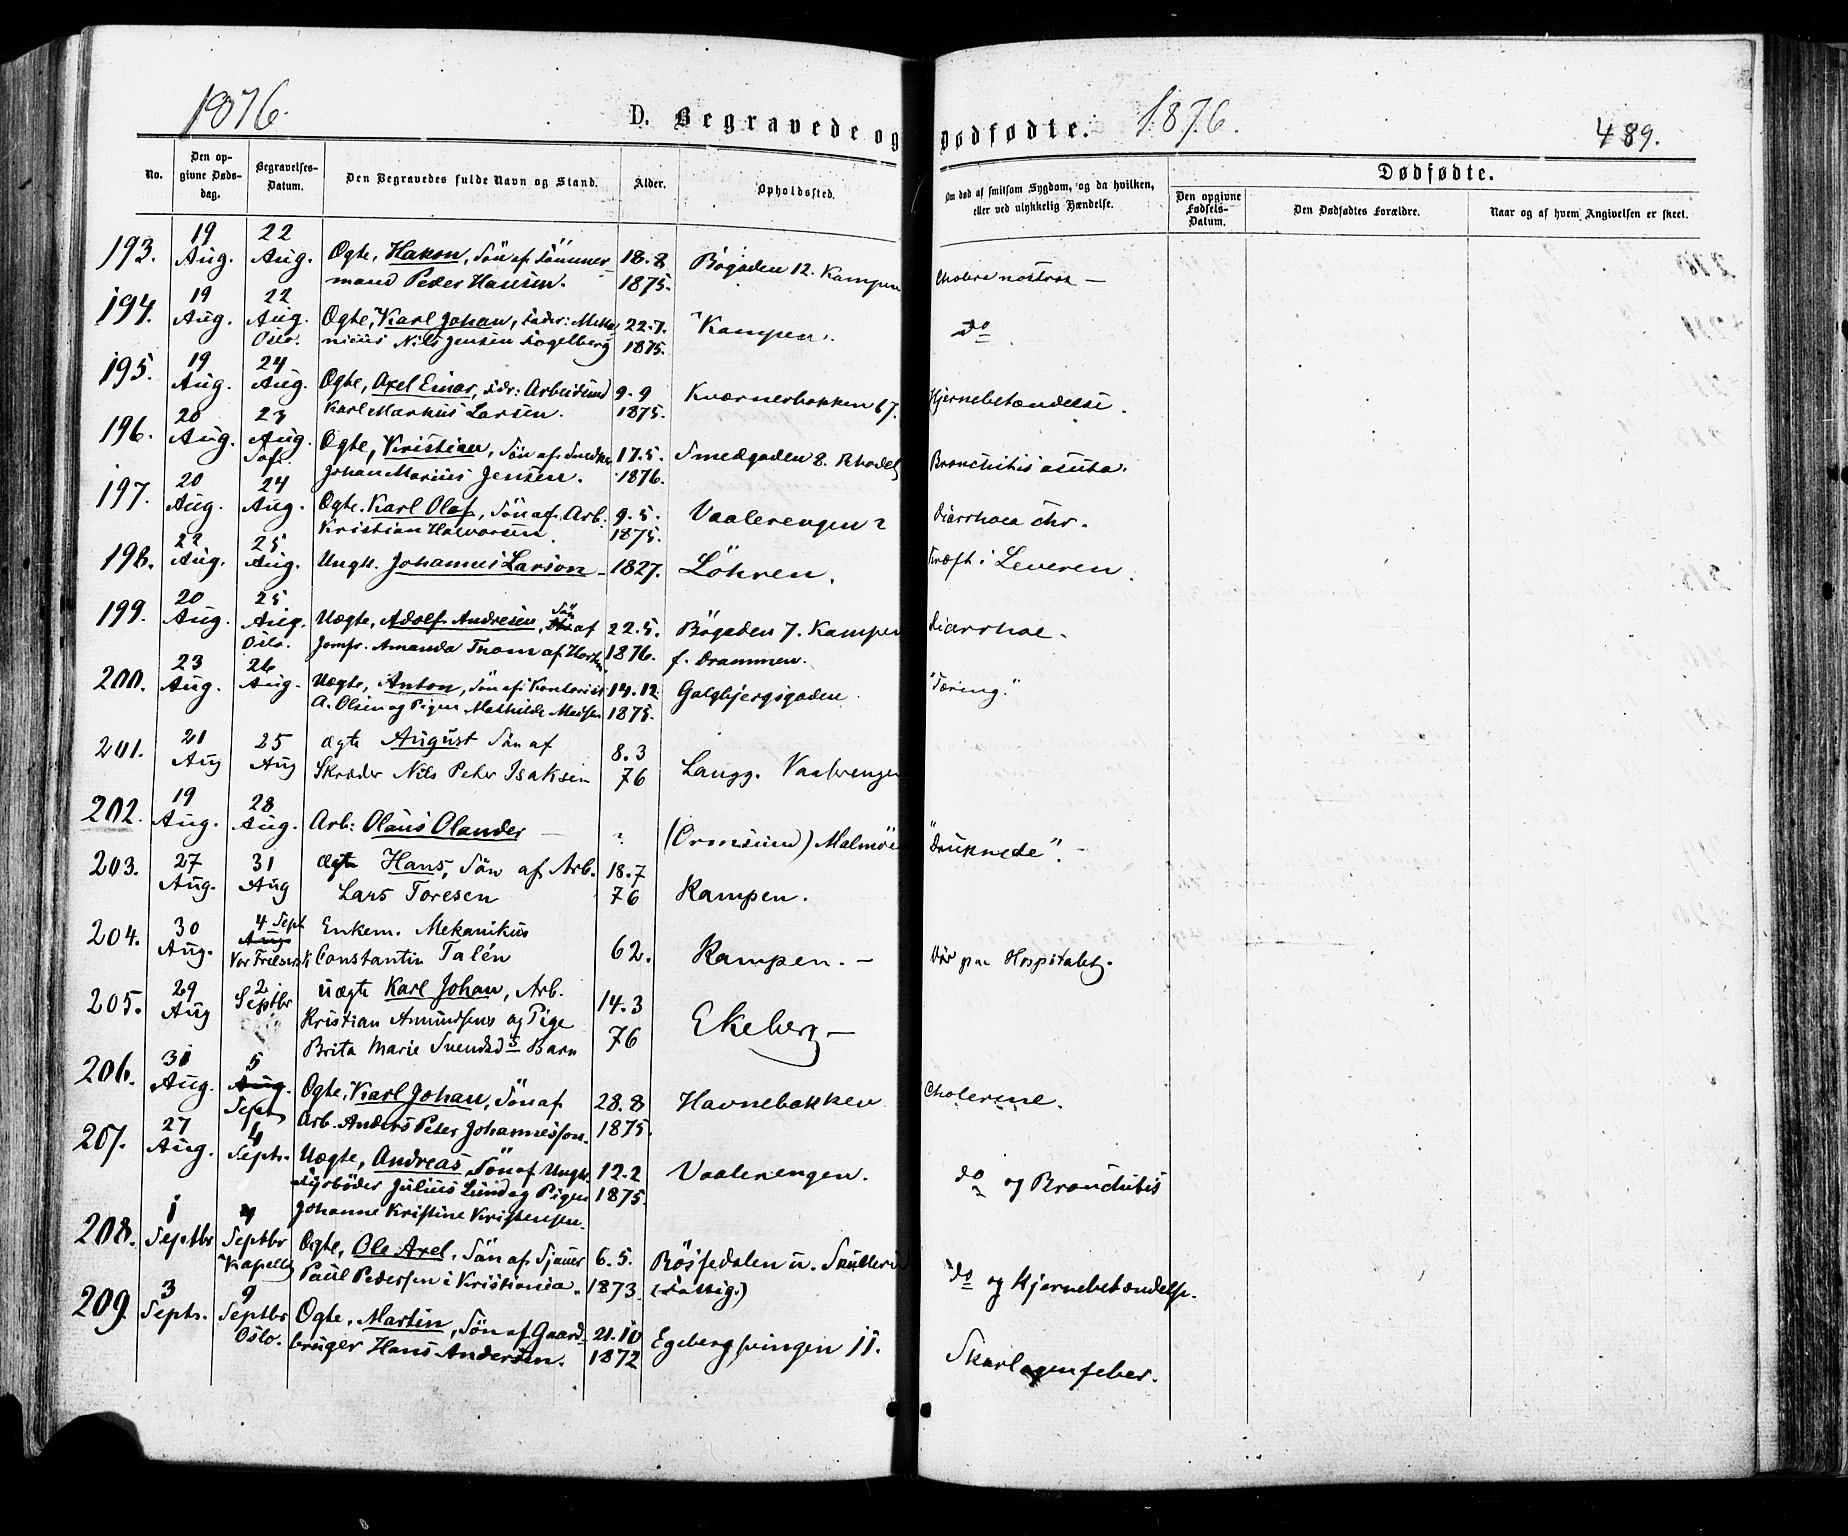 1876.
D. Begravede og Dødfødte.
1876.
489.
No.
Den opgivne Dødsdag.
Begravelses-Datum.
Den Begravedes fulde Navn og Stand.
Alder.
Opholdssted.
Om død af smitsom Sygdom, og da hvilken, eller ved ulykkelig Hændelse.
Dødfødte.
Den opgivne Fødsels-Datum.
Den Dødfødtes Forældre.
Naar og af hvem Angivelsen er skeet.
193. 19 Aug. 22 Aug. Ogte, Hakon, Sön af Tömmer- 18.8 Bögaden 12. Kampen Cholera nostras —
mand Peder Hansen. 1875.
194. 19 Aug. 22 Aug. Oslo. Ogte, Karl Johan, Fader: Meka- 22.7. Kampen. do
nicus Nils Jensen Fogelberg 1875.
195. 19 Aug. 24 Aug. Ogte, Axel Einar, Fdr: Arbeidsmd 9.9 Kværnerbakken 67. Hjernebetændelse.
Karl Markus Larsen. 1875.
196. 20 Aug. 23 Aug. Ogte, Kristian, Sön af Snedker 17.5. Smedgaden 8. Bronchitis acuta.
Johan Marius Jensen. 1876.
197. 20 Aug. 24 Aug. Ogte. Karl Olaf, Sön af Arb: 9.5. Vaalerengen 2 Diarrhoea chr.
Kristian Halvorsen. 1875.
198. 22 Aug. 25 Aug. Ungk. Johannes Larson - 1827. Löhren. Kræft i Leveren.
199. 20 Aug. 25 Aug. Oslo. Uægte, Adolf Andresen, Sön af 22.5. Bögaden 7. Kampen Diarrhoe.
Jomfr. Amanda Thom af Horten 1876. f. Drammen.
200. 23 Aug. 26 Aug. Uægte, Anton, Sön af Kontorist 14.12 Galgbjergsgaden. "Tæring."
A. Olsen og Pigen Mathilde Madsen 1875.
201. 21 Aug 25 Aug ægte August Sön af 8.3 Langg. Vaalerengen
Skræder Nils Peter Isaksen 76
202. 19 Aug. 28 Aug. Arb: Olaus Olander — ? (Ormsund) Malmöen "Druknede".
203. 27 Aug. 31 Aug ægte Hans, Sön af Arb. 18.7 Kampen.
Lars Toresen 76
204. 30 Aug. 4 Sept Aug. Vor Frelsers K Enkem. Mekanikus 62. Kampen. — Död paa Hospitalet.
Constantin Talén
205. 29 Aug 2 Septbr uægte Karl Johan, Arb. 14.3 Ekeberg —
Kristian Amundsens og Pige 76
Brita Marie Svendsds Barn
206. 31 Aug. 5 Aug. Sept Ogte, Karl Johan, Sön af 28.8 Havnebakken Cholerine.
Arb. Anders Peter Johannesson. 1875.
207. 27 Aug. 4 Septr. Uægte, Andreas, Sön af Ungk. 12.2 Vaalerengen. do og Bronchitis
Fyrböder Julius Lund og Pigen 1875.
Johanne Kristine Kristensen.
208. 1 Septbr 4 Septbr Kapellet Ogte, Ole Axel, Sön af Sjauer 6.5. Bössedalen u. do og Hjernebetændelse.
Paul Pedersen i Kristiania. 1873. (Fattig.)
209. 3 Septr. 9 Septbr Oslo. Ogte, Martin, Sön af Gaard- 21.10 Egebergsvingen 11. Skarlagensfeber.
bruger Hans Andersen. 1872